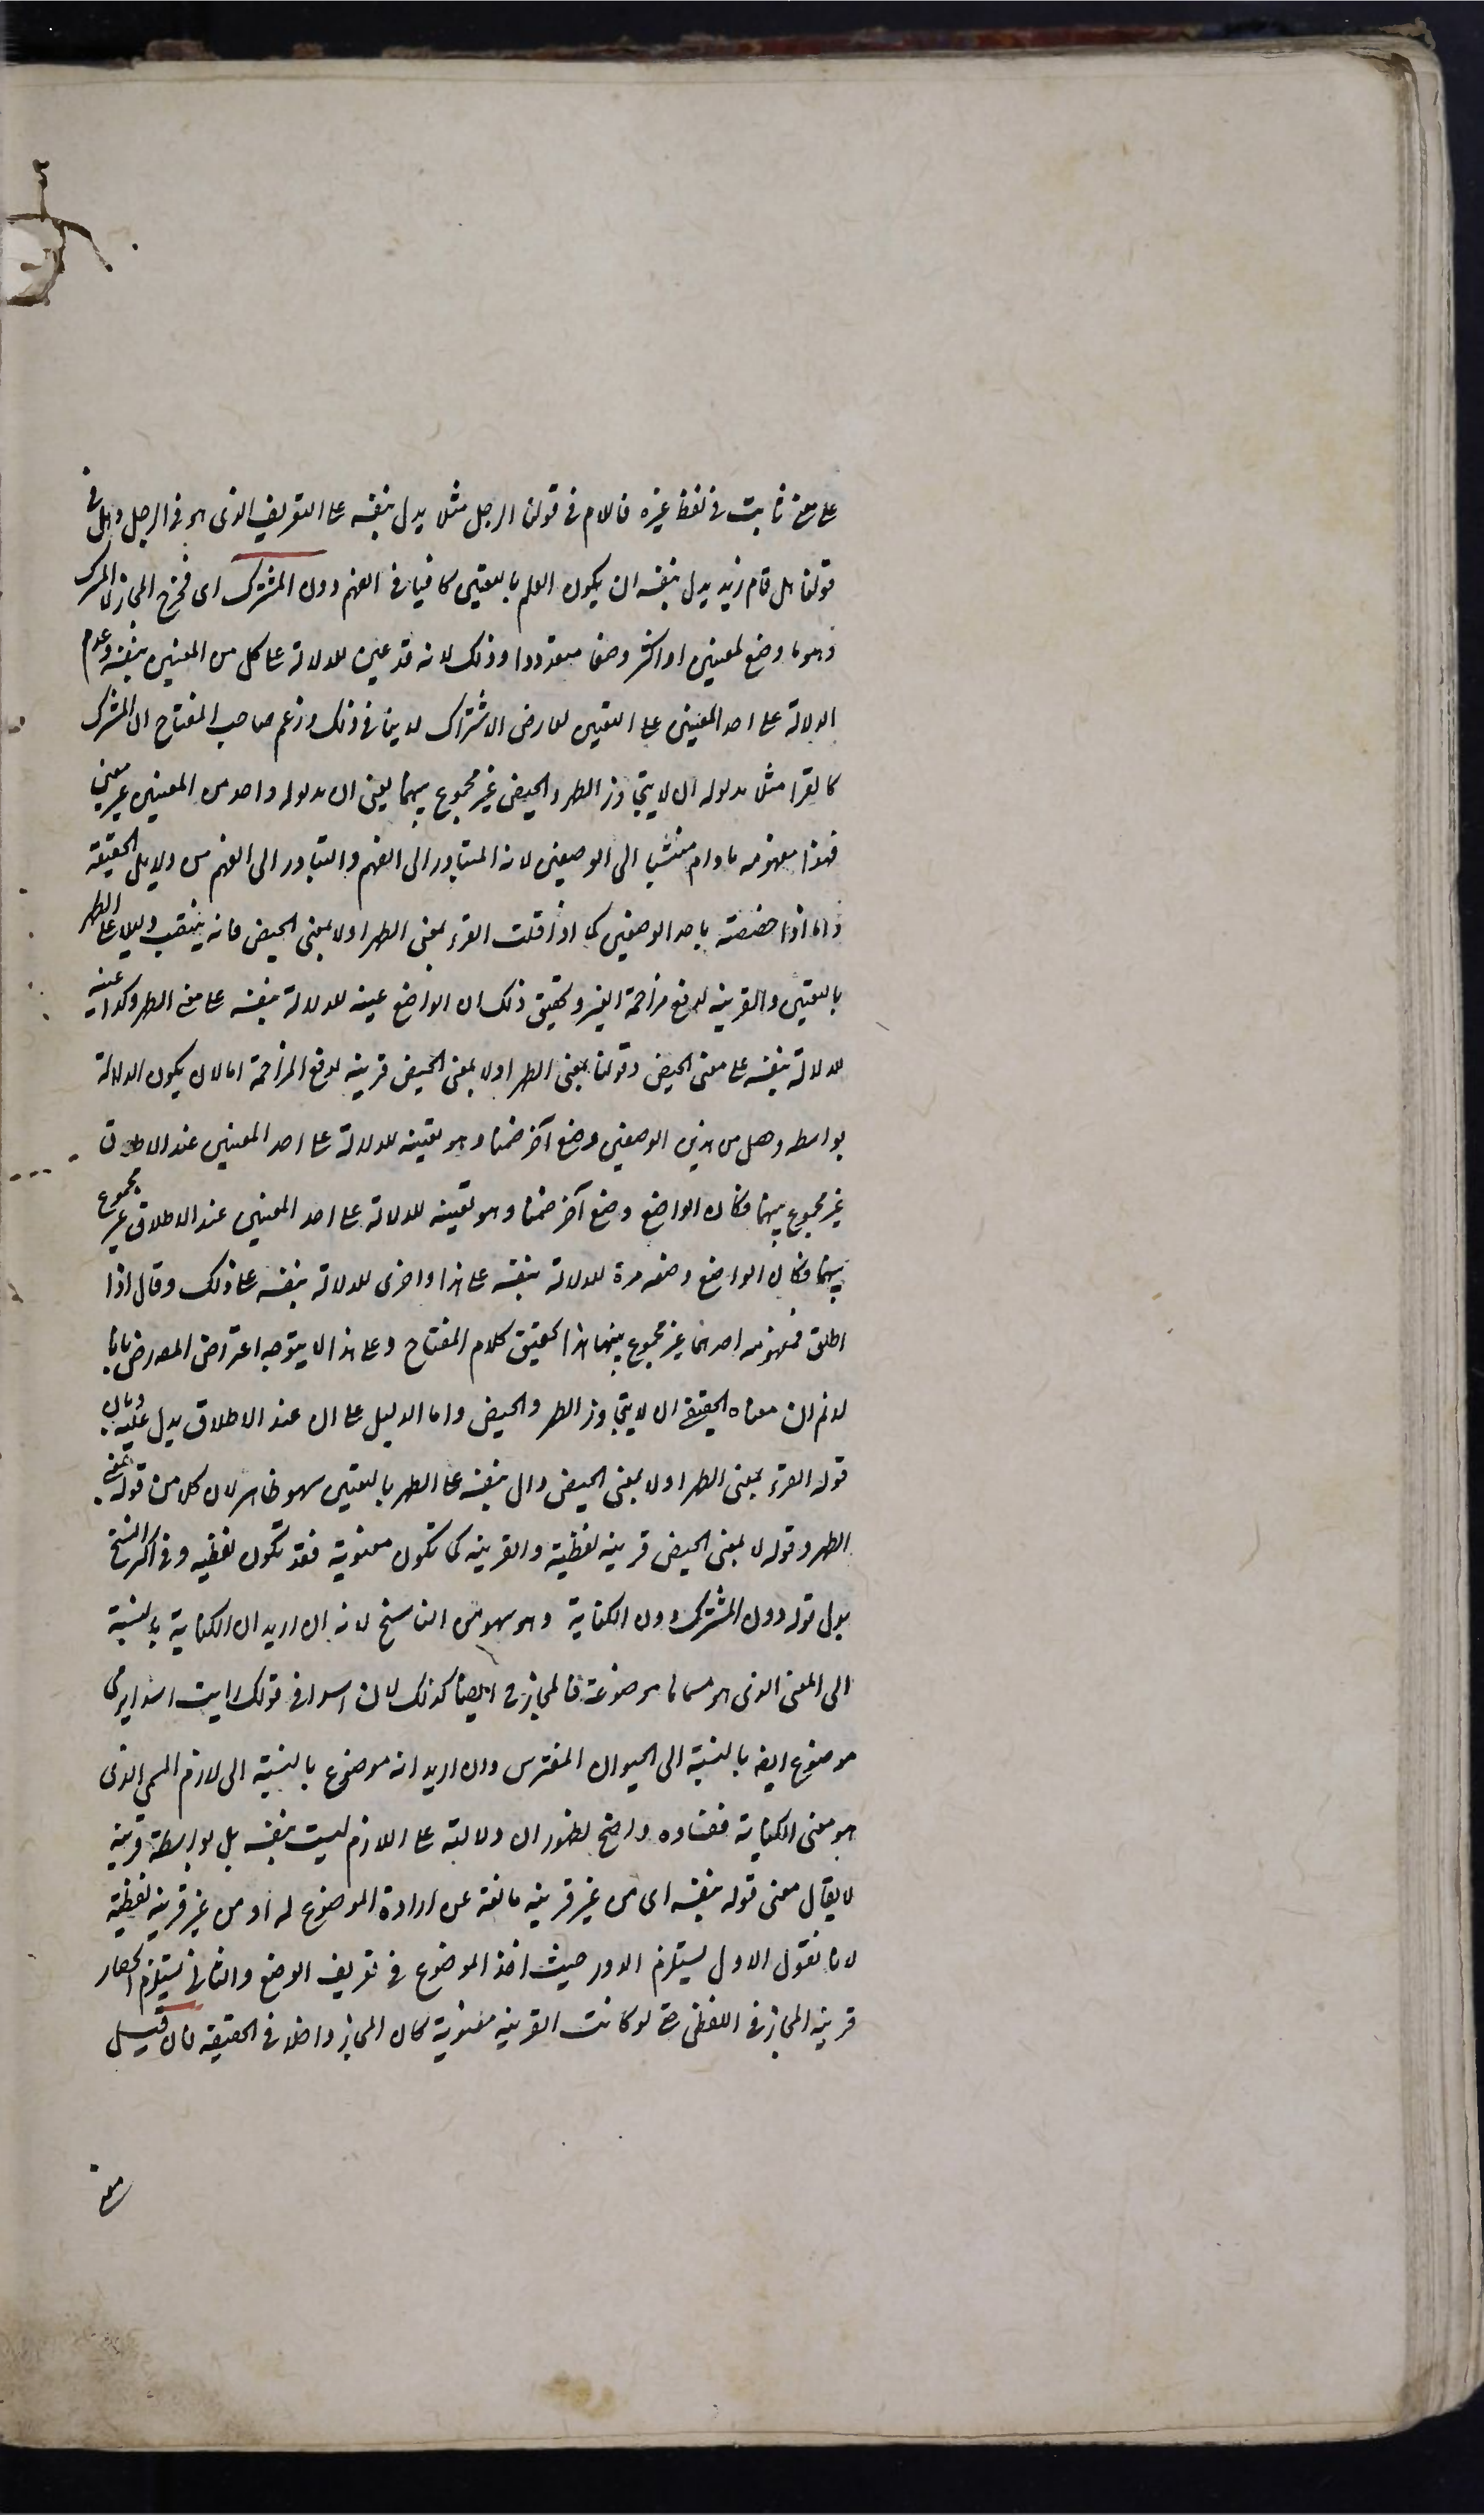 على معنى ثابت في لفظ غيره فاللام في قولنا الرجل مثلا يدل بنفسه على التعريف الذى هو في الرجل وهل في
قولنا هل قام زيد يدل بنفسه ان يكون العلم بالتعيين كافيا في الفهم دون المشترك اى فخرج المجاز لا المشترك
وهو ما وضع لمعنيين او اكثر وضعا متعددا وذلك لانه قد عين للدلالة على كل من المعنيين بنفسه وعدم
الدلالة على احد المعنيين على التعيين لعارض الاشتراك لا ينافى ذلك وزعم صاحب المفتاح ان المشترك
كالقرا مثلا مدلوله ان لا يتجاوز الطهر والحيض غير مجموع بينهما يعنى ان مدلوله واحد من المعنيين غير معين
فهذا مفهومه مادام منتسبا الى الوضعين لانه المتبادر الى الفهم والتبادر الى الفهم من دلايل الحقيقة
واما اذا خصصته باحد الوضعين كما اذا قلت القرء بمعنى الطهر اولا بمعنى الحيض فانه ينتصب دليلا على الطهر
بالتعيين والقرينه لدفع مزاحمة الغير وتحقيق ذلك ان الواضع عينه للدلالة بنفسه على معنى الطهر وكذا عينه
للدلالة بنفسه على معنى الحيض وقولنا بمعنى الطهر اولا بمعنى الحيض قرينه لدفع المزاحمة لا لان يكون الدلالة
بواسطه وحصل من هذين الوضعين وضع آخر ضمنا وهو تعينه للدلالة على احد المعنيين عند الاطلاق
غير مجموع بينهما فكان الواضع وضع آخر ضمنا وهو تعينه للدلالة على احد المعنيين عند الاطلاق غير مجموع
بينهما فكان الواضع وضعه مرة للدلالة بنفسه على هذا واخرى للدلالة بنفسه على ذلك وقال اذا
اطلق فمفهومه احدهما غير مجموع بينهما هذا تحقيق كلام المفتاح وعلى هذا لا يتوجه اعتراض المصرض بانا
لا نم ان معناه الحقيقى ان لا يتجاوز الطهر والحيض واما الدليل على ان عند الاطلاق يدل عليه وبان
قوله القرء بمعنى الطهر اولا بمعنى الحيض دال بنفسه على الطهر بالتعيين سهو ظاهر لان كلا من قوله بمعنى
الطهر وقوله لا بمعنى الحيض قرينه لفظية والقرينه كما تكون معنوية فقد تكون لفظيه وفي اكثر النسخ
بدل قوله دون المشترك دون الكناية وهو سهو من الناسخ لانه ان اريد ان الكناية بالنسبة
الى المعنى الذى هو مسماها موضوعة فالمجاز ايضا كذلك لان اسدا في قولك رايت اسدا يرمى
موضوع ايضه بالنسبة الى الحيوان المفترس وان اريد انه موضوع بالنسبة الى لازم المسمى الذى
هو معنى الكناية ففساده واضح لظهور ان دلالته على اللازم ليست بنفسه بل بواسطة قرينه
لا يقال معنى قوله بنفسه اى من غير قرينه مانعة عن ارادة الموضوع له او من غير قرينه لفظية
لانا نقول الاول يستلزم الدور حيث اخذ الموضوع في تعريف الوضع والثانى يستلزم انحصار
قرينه المجاز في اللفظى حتى لو كانت القرينه معنوية كان المجاز داخلا في الحقيقه فان قيل